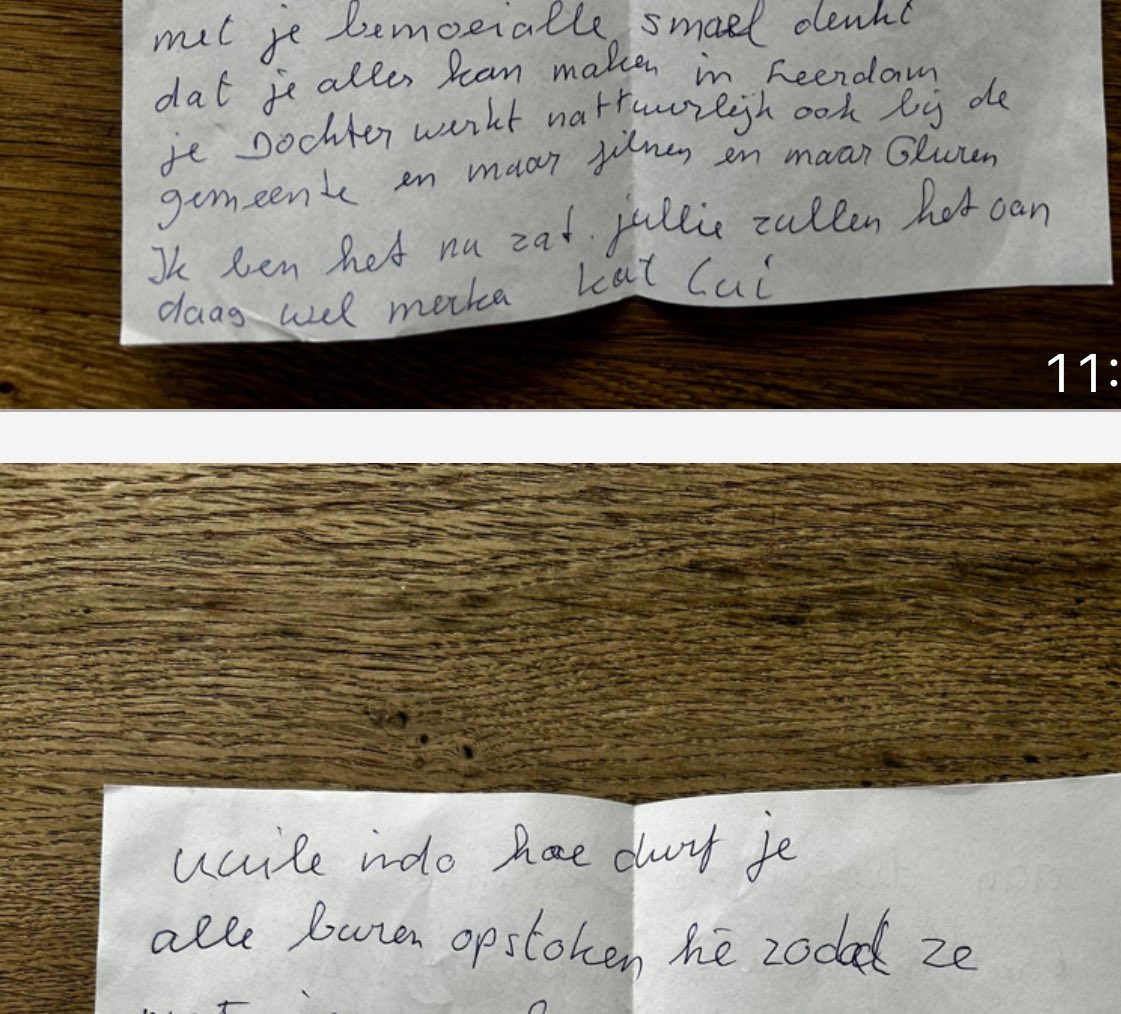 met je bemoeialle smael denkt
dat je alles kan maken in Leerdam
je Dochter werkt nattuurlijk ook bij de
gemeente en maar filmen en maar Gluren
Ik ben het nu zat. jullie zullen het van
daag wel merke kut Lui
11:
vuile indo hoe durf je
alle buren opstoken hè zodat ze